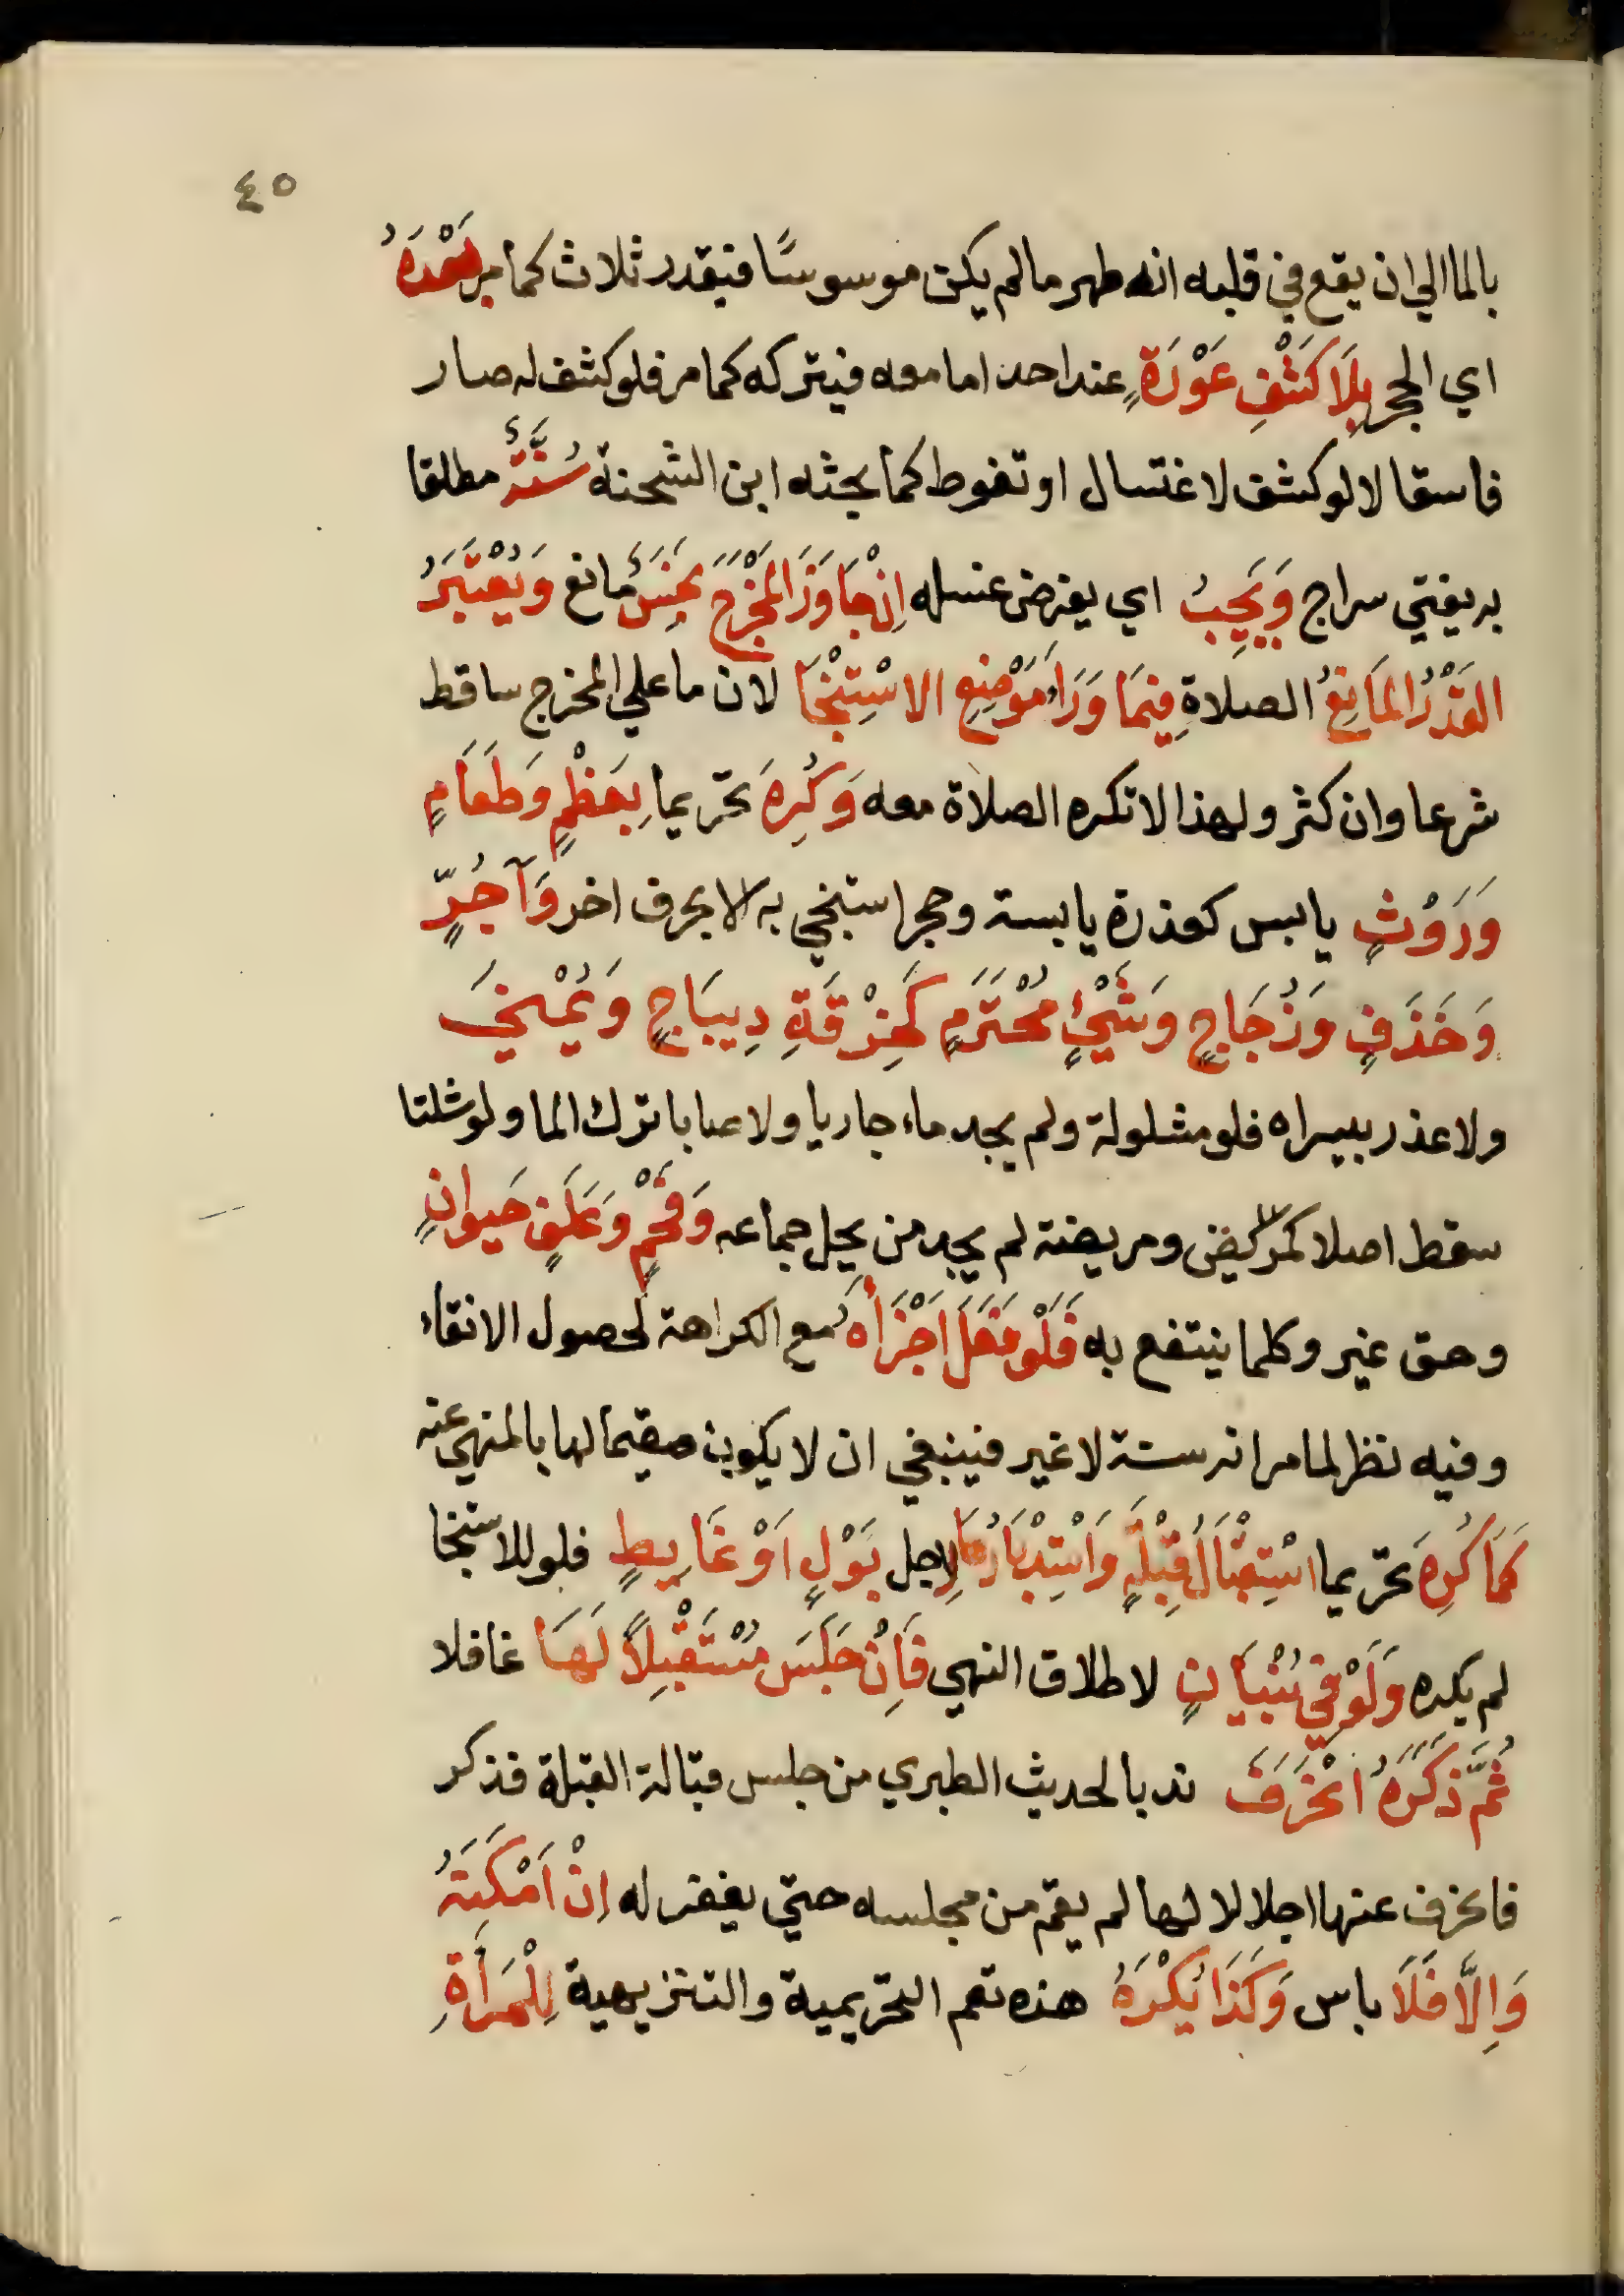 ٤٥
بالما الي ان يقع في قلبه انه طهر ما لم يكن موسوسًا فيقدر ثلاث كما مر بَعْدَهُ
اي الحجر بِلَا كَشْفِ عَوْرَةٍ عند احد اما معه فيتركه كما مر فلو كشف له صار
فاسقا لا لو كشف لاغتسال او تغوط كما بحثه ابن الشحنة سُنَّةٌ مطلقا
به يفتي سراج وَيَجِبُ اي يفرض غسله اِنْ جَاوَزَ الْمَخْرَجَ نَجَسٌ مانع وَيُعْتَبَرُ
القَدْرُ المَانِعُ الصلاةِ فِيمَا وَرَاءَ مَوْضِعِ الاسْتِنْجَا لان ما علي المخرج ساقط
شرعا وان كثر ولهذا لا تكره الصلاة معه وَكُرِهَ تحريما بِعَظْمٍ وَطَعَامٍ
وَرَوْثٍ يابس كعذرة يابسة وحجر استنجي به الا بحرف اخر وَآجُرٍّ
وَخَذَفٍ وَزُجَاجٍ وَشَيْءٍ مُحْتَرَمٍ كَخِرْقَةِ دِيبَاجٍ وَيُمْنَي
ولا عذر بيسراه فلو مشلولة ولم يجد ماء جاريا ولا صابا ترك الما ولو شلتا
سقط اصلا كمريض ومريضة لم يجد من يحل جماعه وَفَحْمٍ وَعَلَفِ حَيوانٍ
وحق غير وكلما ينتفع به فَلَوْ فَعَلَ اَجْزَأَهُ مع الكراهة لحصول الانقاء
وفيه نظر لما مر انه سنة لا غير فينبغي ان لا يكون مقيما لها بالمنهي عنه
كَمَا كُرِهَ تحريما اسْتِقْبَالُ قِبْلَةٍ وَاسْتِدْبَارُهَا لِاجل بَوْلٍ اَوْ غَايِطٍ فلو للاستنجا
لم يكره وَلَوْ فِي بُنْيَانٍ لاطلاق النهي فَاِنْ جَلَسَ مُسْتَقْبِلًا لَهَا غافلا
ثُمَّ ذَكَرَهُ انْحَرَفَ ندبا لحديث الطبري من جلس قبالة القبلة فذكر
فانحرف عنها اجلالا لها لم يقم من مجلسه حتي يغفر له اِنْ اَمْكَنَهُ
وَاِلَّا فَلَا باس وَكَذَا يُكْرَهُ هذه تعم التحريمية والتنزيهية لِلْمَرْأَةِ